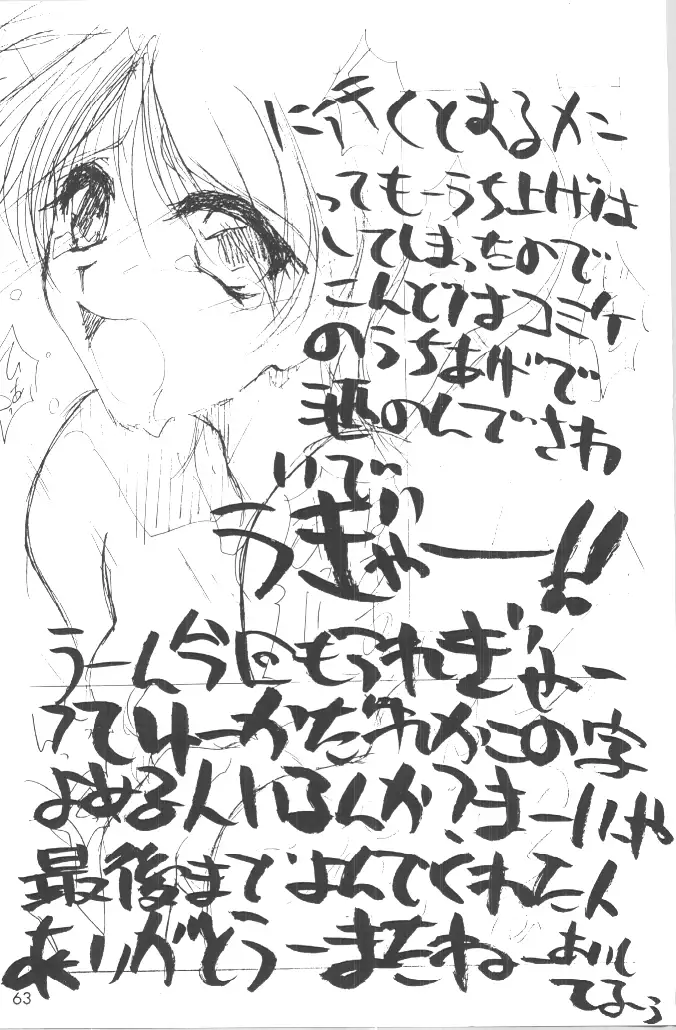 に行くとするメニ
ってもーうち上げは
してしまったので
こんどはコミケ
のうちあげで
酒のんでさわ
いでい
うぎゃー!!
うーん今にもつれぎゃー
ってゆーかだれかこの字
よめる人いるんか?まーいいや
最後までよんでくれた人
ありがとうーまたねーあいし
てるぅ
63